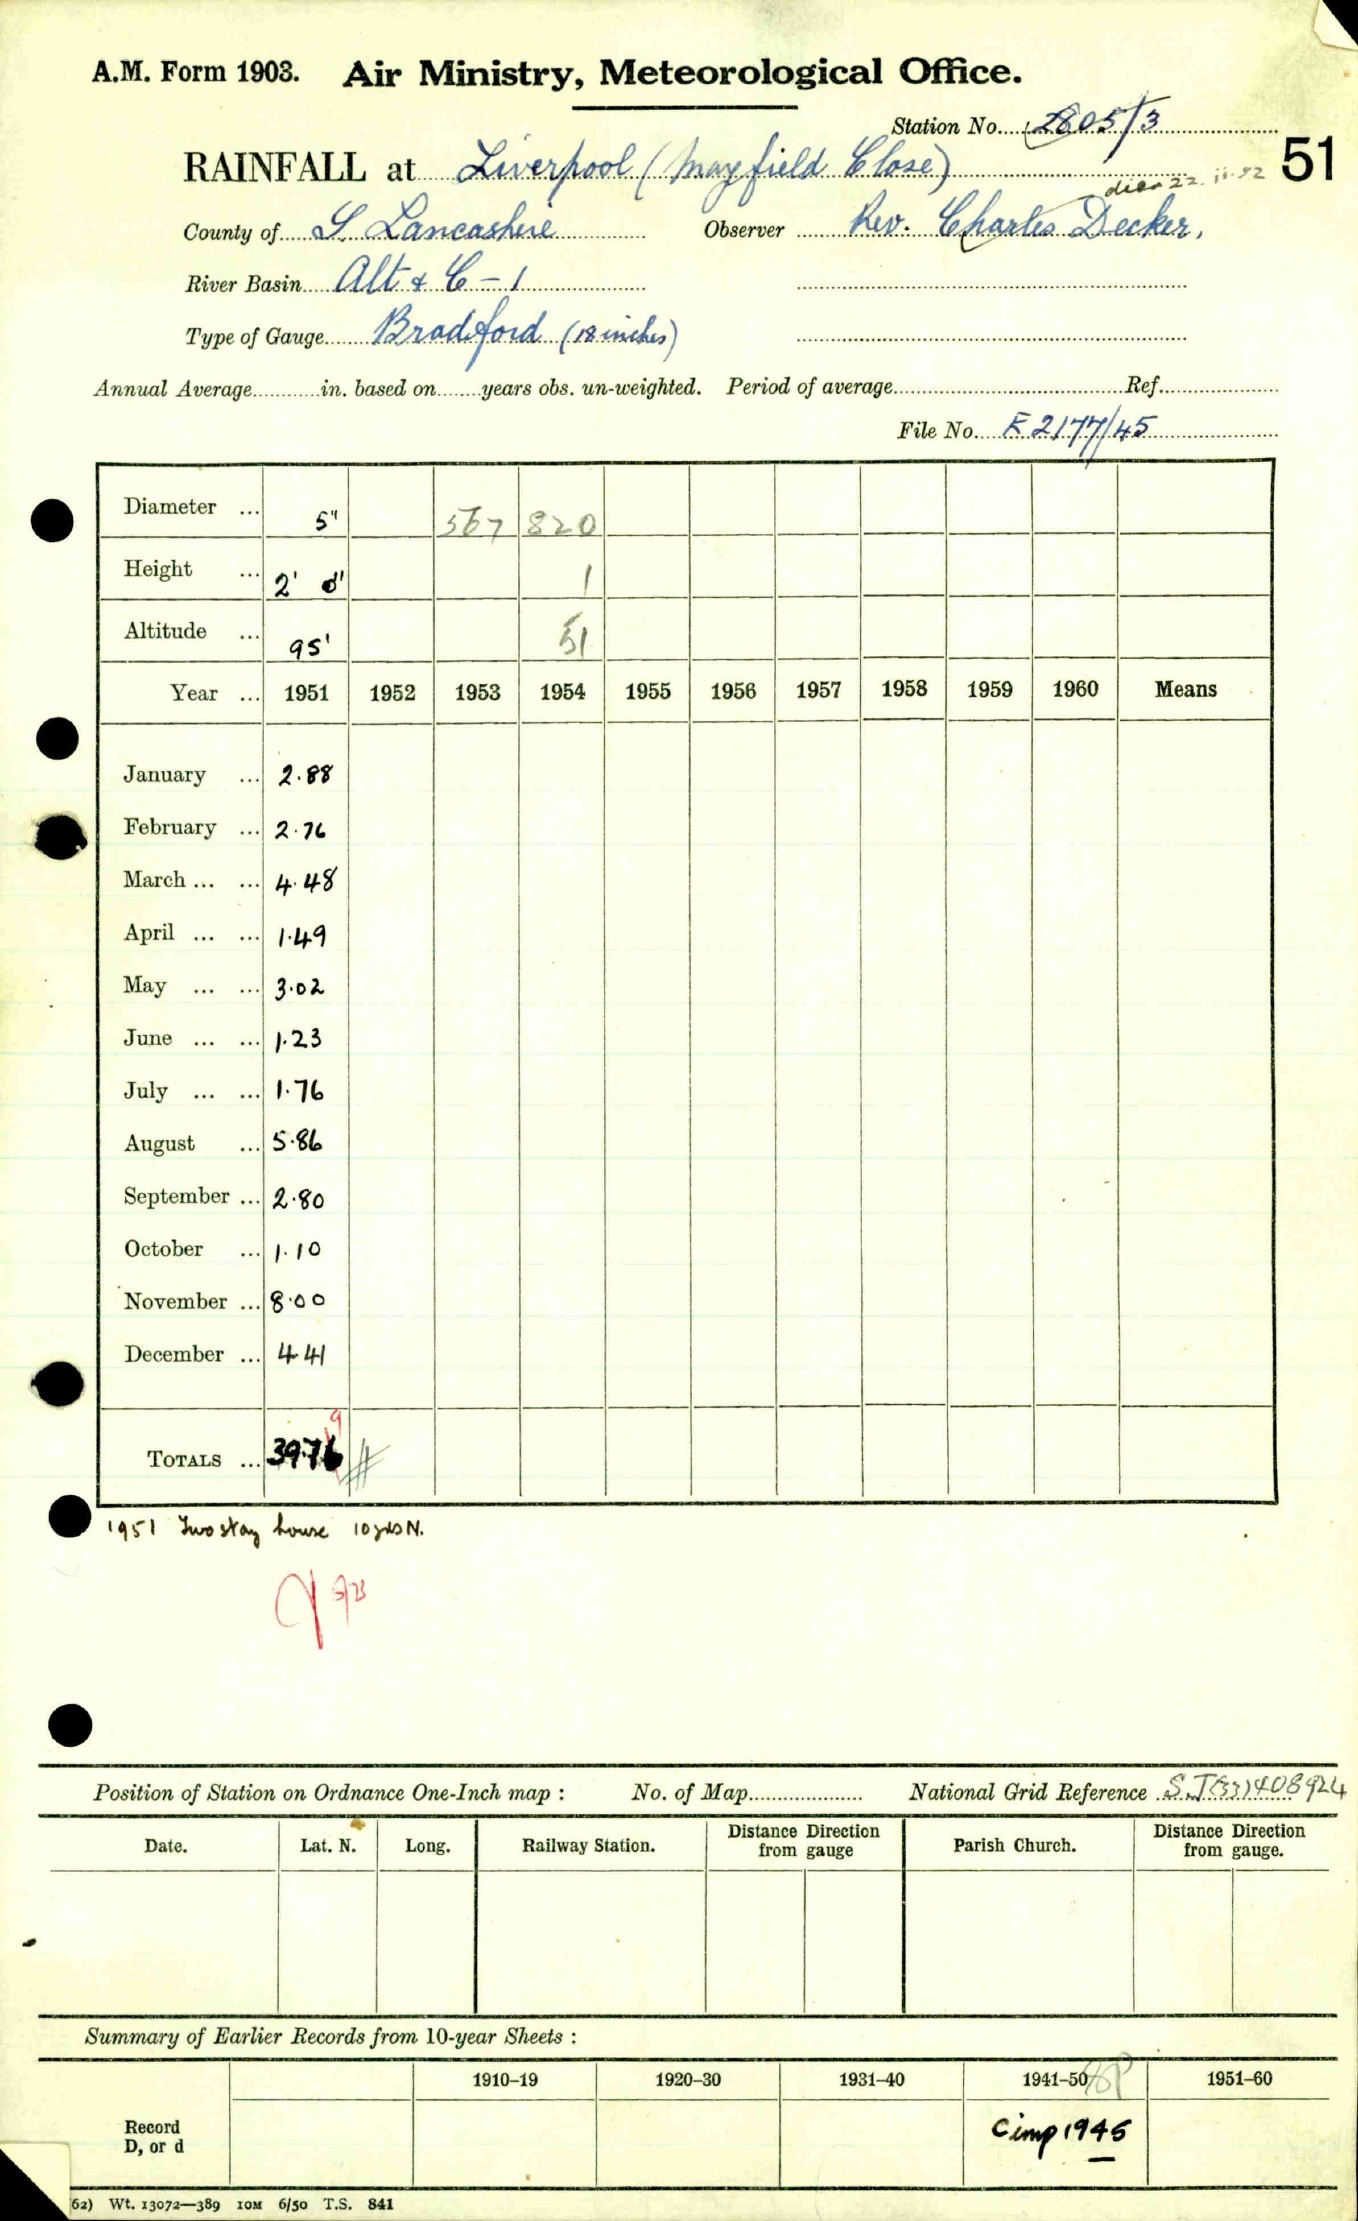 A.M. Form 1903. Air Ministry, Meteorological Office.
Station No. 2805/3
RAINFALL at Liverpool (Mayfield Close) 51
died 22.11.52
County of S. Lancashire Observer Rev. Charles Decker,
River Basin Alt & C - 1
Type of Gauge Bradford (18 inches)
Annual Average in. based on years obs. un-weighted. Period of average Ref.
File No. E2177/45
Diameter ... 5" 567 820
Height ... 2' 0" 1
Altitude ... 95' 51
Year ... 1951 1952 1953 1954 1955 1956 1957 1958 1959 1960 Means
January ... 2.88
February ... 2.76
March ... ... 4.48
April ... ... 1.49
May ... ... 3.02
June ... ... 1.23
July ... ... 1.76
August ... 5.86
September ... 2.80
October ... 1.10
November ... 8.00
December ... 4.41
9
TOTALS ... 39.76
1951 Two story house 10 yds N.
Position of Station on Ordnance One-Inch map : No. of Map National Grid Reference SJ(33)408924
Date. Lat. N. Long. Railway Station. Distance Direction from gauge Parish Church. Distance Direction from gauge.
Summary of Earlier Records from 10-year Sheets :
1910–19 1920–30 1931–40 1941–50 1951–60
Record
D, or d
C imp 1945
62) Wt. 13072—389 10M 6/50 T.S. 841